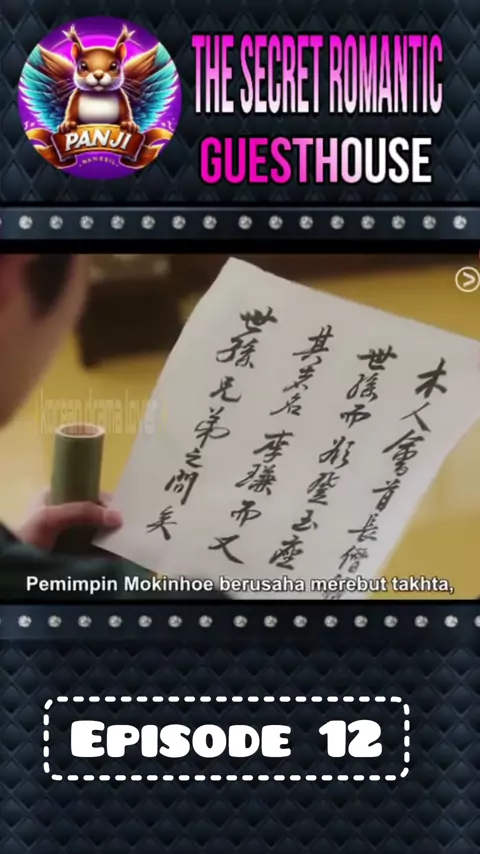 PANJI
THE SECRET ROMANTIC
GUESTHOUSE
korean drama lover
木人會首長僭
世孫而欲登玉座
其名李而又
世孫兄弟之間矣
Pemimpin Mokinhoe berusaha merebut takhta,
EPISODE 12